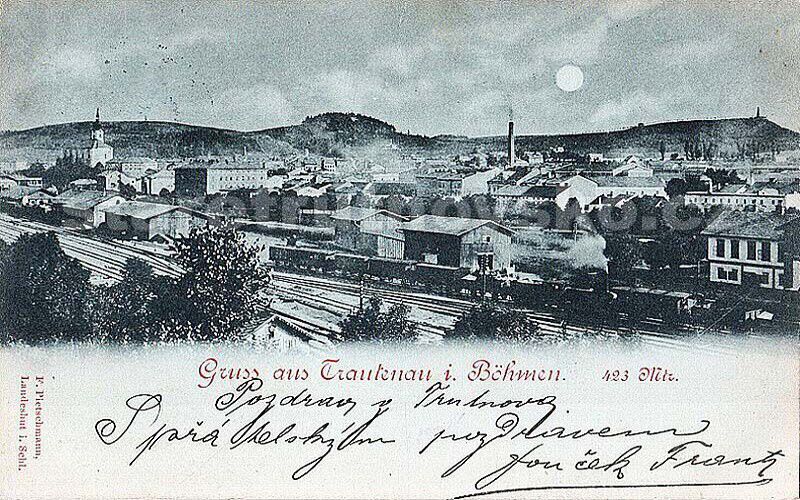 starotrutnovsko.cz
Gruss aus Trautenau i. Böhmen. 423 Mtr.
F. Pietschmann,
Landeshut i. Schl.
Pozdrav z Trutnova
S přátelským pozdravem
Jouček Frantz